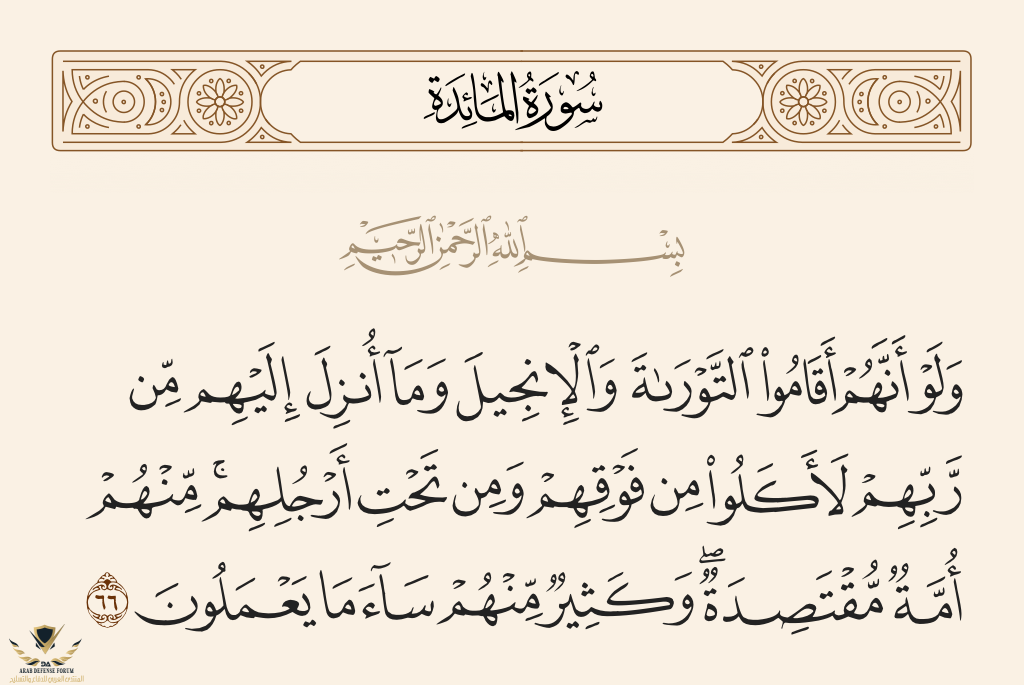 سُورَةُ المَائِدَةِ
بِسْمِ ٱللَّهِ ٱلرَّحْمَٰنِ ٱلرَّحِيمِ
وَلَوْ أَنَّهُمْ أَقَامُوا۟ ٱلتَّوْرَىٰةَ وَٱلْإِنجِيلَ وَمَآ أُنزِلَ إِلَيْهِم مِّن
رَّبِّهِمْ لَأَكَلُوا۟ مِن فَوْقِهِمْ وَمِن تَحْتِ أَرْجُلِهِم ۚ مِّنْهُمْ
أُمَّةٌ مُّقْتَصِدَةٌ ۖ وَكَثِيرٌ مِّنْهُمْ سَآءَ مَا يَعْمَلُونَ ٦٦
DA
ARAB DEFENSE FORUM
المنتدى العربي للدفاع والتسليح